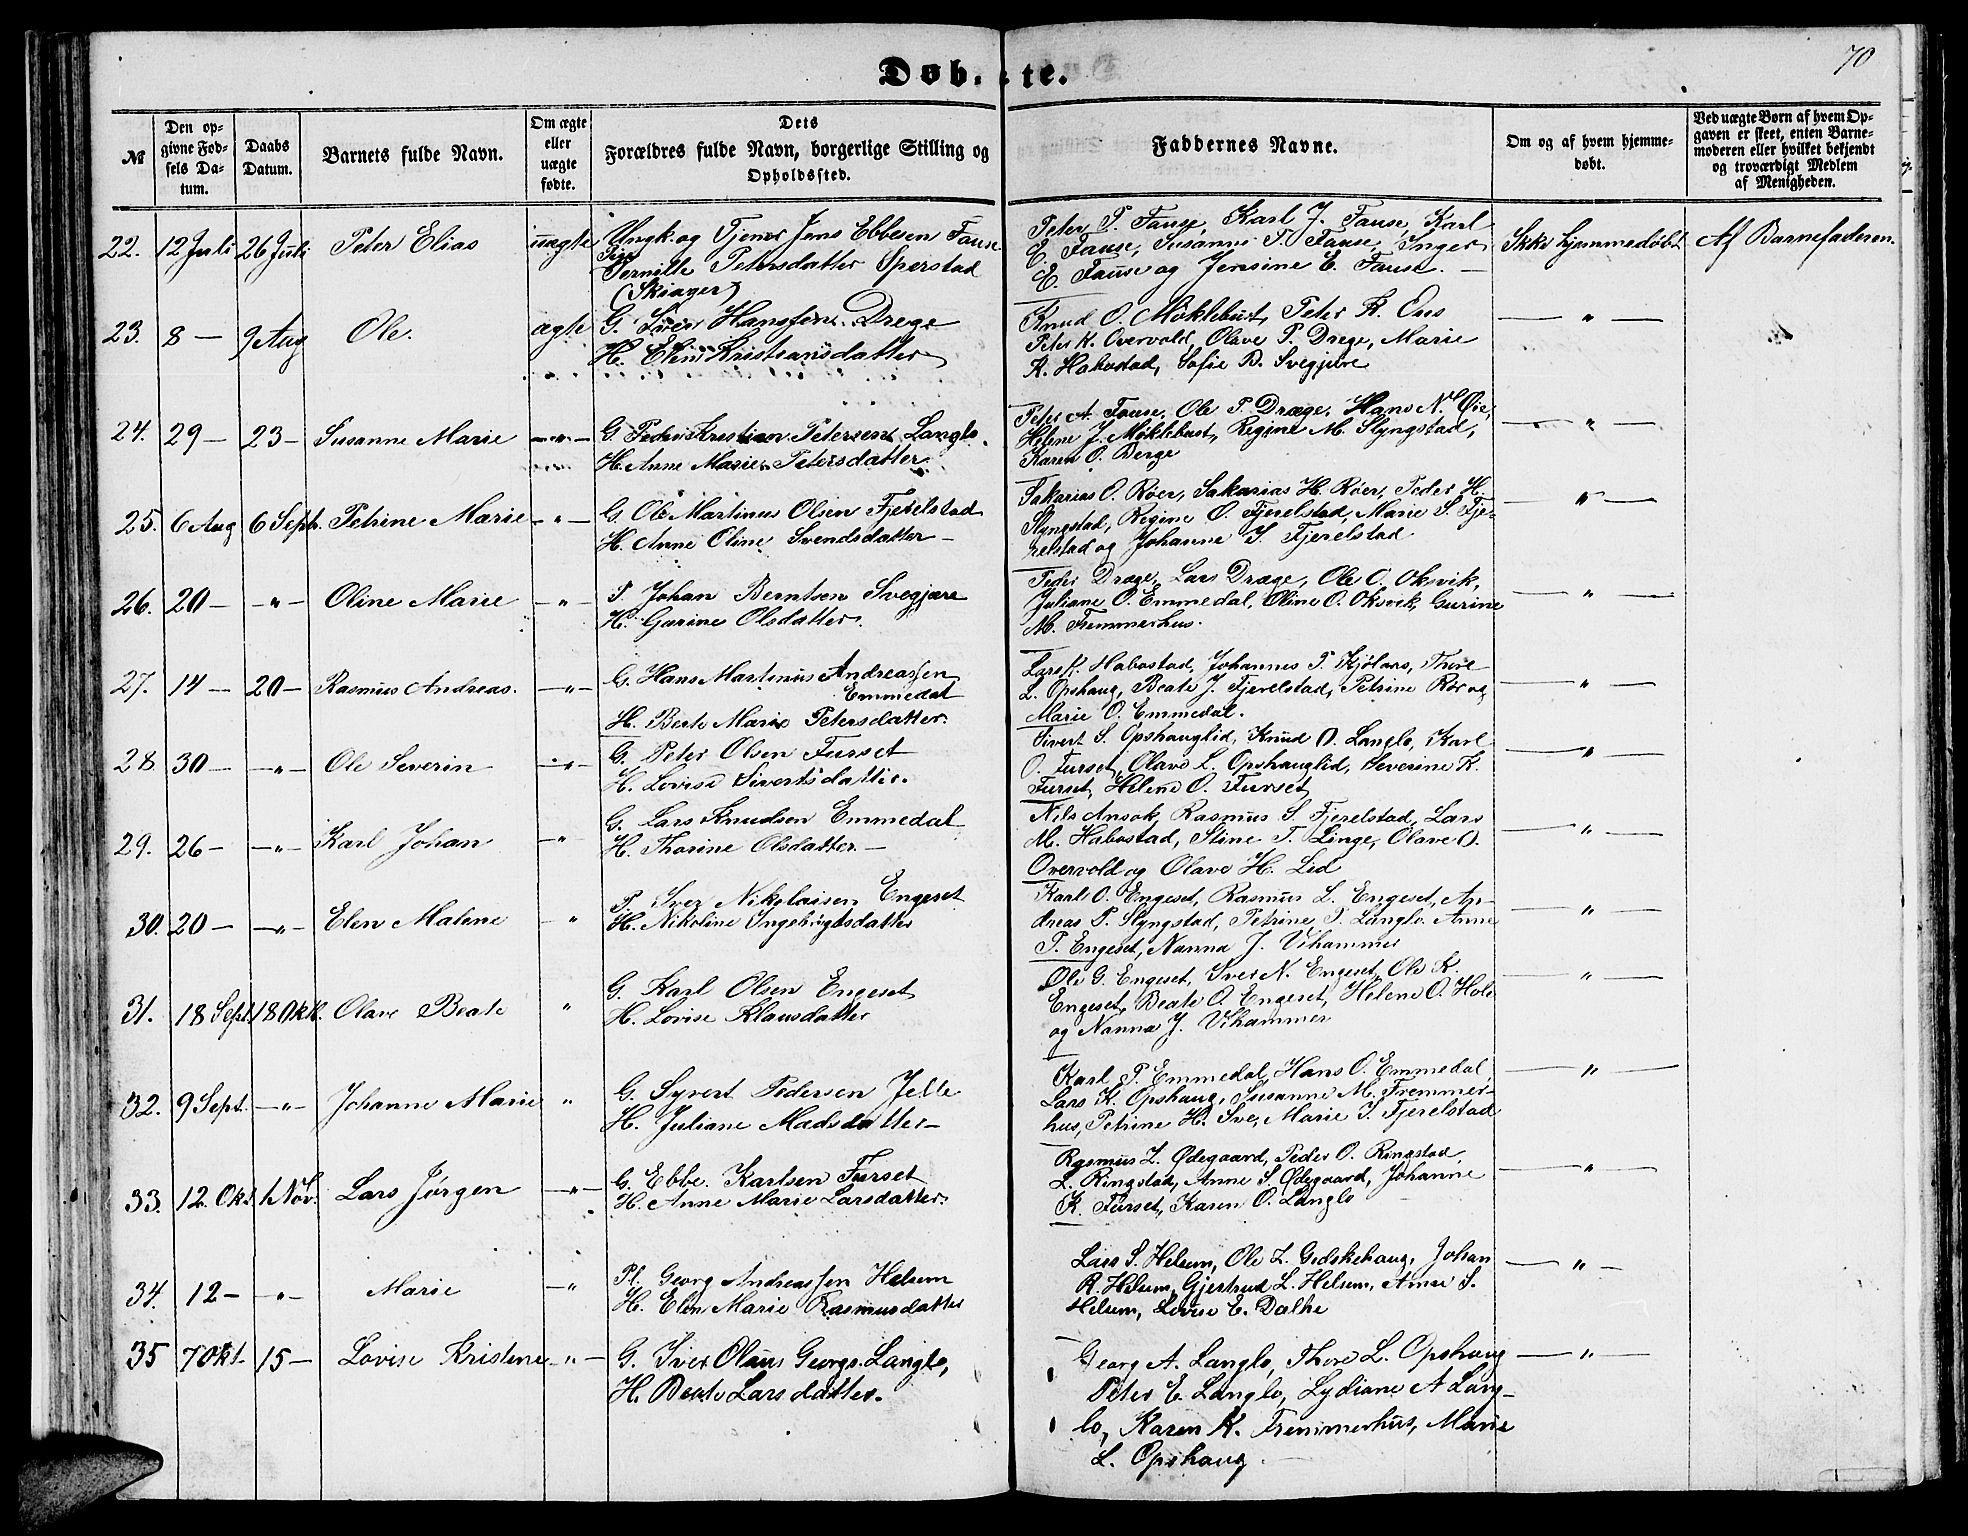 70
Døbte.
№
Den opgivne Fødsels Datum.
Daabs Datum.
Barnets fulde Navn.
Om ægte eller uægte fødte.
Dets Forældres fulde Navn, borgerlige Stilling og Opholdssted.
Faddernes Navne.
Om og af hvem hjemmedøbt.
Ved uægte Børn af hvem Opgaven er skeet, enten Barnemoderen eller hvilket bekjendt og troværdigt Medlem af Menigheden.
22. 12 Juli 26 Juli Peter Elias uægte
Ungk og Tjener Jens Ebbesen Fause
Pige Pernille Petersdatter Sperstad
(Skiager)
Peter P. Fause, Karl J. Fause, Karl
E. Fause, Susanne P. Fause, Inger
E. Fause og Jensine E. Fause. —
Ikke hjemmedøbt Af Barnefaderen.
23. 8 — 9 Aug Ole. ægte
G. Iver Hanssen Drege
H. Elen Kristiansdatter
Knud O. Møklebust, Peter K. Ous
Peter K. Overvold, Olave P. Drege, Marie
K. Habostad, Sofie B. Svegjære
— " —
24. 29 — 23 — Susanne Marie — " —
G. Peder Kristian Petersen Langlo.
H. Anne Marie Petersdatter
Peter A. Fause, Ole P. Dræge, Hans N. Øie,
Helene J. Møklebust, Regine M. Slyngstad,
Karen O. Berge
— " —
25. 6 Aug 6 Sept. Petrine Marie — " —
G. Ole Martinus Olsen Fjerelstad
H. Anne Oline Svendsdatter —
Sakarias O. Røer, Sakarias H. Røer, Peder H.
Slyngstad, Regine O. Fjerelstad, Marie S. Fje-
relstad og Johanne I. Fjerelstad
— " —
26. 20 — — " — Oline Marie — " —
I. Johan Berntsen Svegjære
H. Gurine Olsdatter.
Peder Dræge, Lars Dræge, Ole O. Oksvik,
Juliane O. Emmedal, Oline O. Oksvik, Gurine
M. Fremmerhus.
— " —
27. 14 — 20 — Rasmus Andreas. — " —
G. Hans Martinus Andreassen
Emmedal
H. Berte Marie Petersdatter.
Lars K. Habostad, Johannes P. Kjølaas, Thore
L. Opshaug, Beate J. Fjerelstad, Petrine Rör og
Marie O. Emmedal.
— " —
28 30 — — " — Ole Severin — " —
G. Peter Olsen Furset
H. Lovise Sivertsdatter.
Sivert S. Opshauglid, Knud O. Langlo, Karl
O. Furset, Olave L. Opshauglid, Severine K.
Furset, Helene O. Furset
— " —
29. 26 — — " — Karl Johan — " —
G. Lars Knudsen Emmedal
H. Thorine Olsdatter. —
Nils Ansok, Rasmus S. Fjerelstad, Lars
M. Habostad, Stine T. Linge, Olave O.
Overvold og Olave H. Lid
— " —
30. 20 — — " — Elen Malene — " —
I. Iver Nikolaisen Engeset
H. Nikoline Ingebrigtsdatter
Karl O. Engeset, Rasmus L. Engeset, An-
dreas P. Slyngstad, Petrine P. Langlo, Anne
P. Engeset, Nanna J. Vihammer
— " —
31. 18 Sept. 18 Okt. Olave Beate "
G. Karl Olsen Engeset
H. Lovise Klausdatter
Ole G. Engeset, Iver N. Engeset, Ole K.
Engeset, Beate O. Engeset, Helene O. Hole
og Nanna J. Vihammer
— " —
32. 9 Sept. — " — Johanne Marie "
G. Syvert Pedersen Jelle
H. Juliane Madsdatter —
Karl P. Emmedal, Hans O. Emmedal
Lars K. Opshaug, Susanne M. Fremmer-
hus, Petrine H. Sve, Marie I. Fjerelstad
— " —
33. 12. Okt. 1 Nov. Lars Jørgen — " —
G. Ebbe. Karlsen Furset
H. Anne Marie Larsdatter.
Rasmus L. Ødegaard, Peder O. Ringstad,
L. Ringstad, Anne S. Ødegaard, Johanne
K. Furset, Karen O. Langlo
— " —
34. 12 — — " — Marie — " —
Pl. Georg Andreassen Helsem
H. Elen Marie Rasmusdatter
Lars S. Helsem, Ole L. Gidskehaug, Johan
R. Helsem, Gjertrud L. Helsem, Anne S.
Helsem, Lovise E. Dalhe
— " —
35 7 Okt. 15 — Lovise Kristine — " —
G. Iver Olaus Georgs. Langlo,
H. Beate Larsdatter.
Georg A. Langlo, Thore L. Opshaug
Peter E. Langlo, Lydiane A Lang-
lo, Karen K. Fremmerhus, Marie
L. Opshaug
— " —